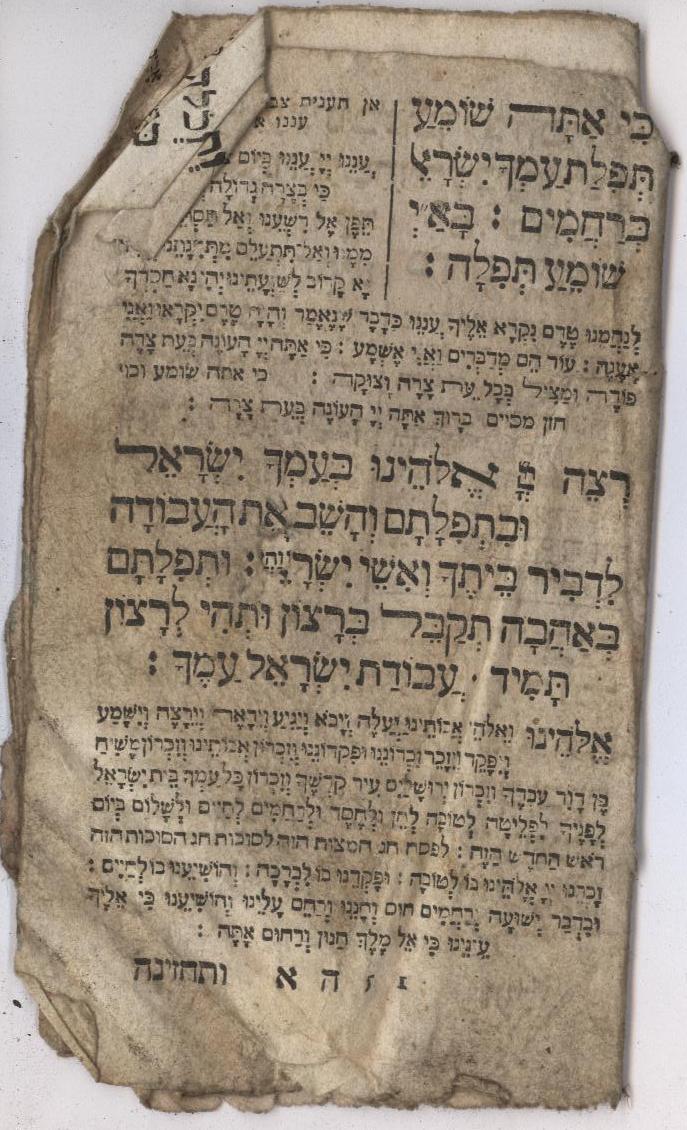 כִּי אַתָּה שׁוֹמֵעַ
תְּפִלַּת עַמְּךָ יִשְׂרָאֵ
בְּרַחֲמִים : בָּאַ״יְ
שׁוֹמֵעַ תְּפִלָּה :
אן תענית צב
עננו א
עֲנֵנוּ יְיָ עֲנֵנוּ בְּיוֹם
כִּי בְצָרָה גְדוֹלָה
תֵּפֶן אֶל רִשְׁעֵנוּ וְאַל תַּסְתֵּ
מִמֶּנּוּ וְאַל תִּתְעַלַּם מִתְּחִנָּתֵנוּ
נָא קָרוֹב לְשַׁוְעָתֵינוּ יְהִי נָא חַסְדְּךָ
לְנַחֲמֵנוּ טֶרֶם נִקְרָא אֵלֶיךָ עֲנֵנוּ כַּדָּבָר שֶׁנֶּאֱמַר וְהָיָה טֶרֶם יִקְרָאוּ וַאֲנִי
אֶעֱנֶה : עוֹד הֵם מְדַבְּרִים וַאֲנִי אֶשְׁמָע : כִּי אַתָּה יְיָ הָעוֹנֶה בְּעֵת צָרָה
פּוֹדֶה וּמַצִּיל בְּכָל עֵת צָרָה וְצוּקָה : כי אתה שומע וכו׳
חזן מסיים בָּרוּךְ אַתָּה יְיָ הָעוֹנֶה בְּעֵת צָרָה :
רְצֵה יְיָ אֱלֹהֵינוּ בְּעַמְּךָ יִשְׂרָאֵל
וּבִתְפִלָּתָם וְהָשֵׁב אֶת הָעֲבוֹדָה
לִדְבִיר בֵּיתֶךָ וְאִשֵּׁי יִשְׂרָ : וּתְפִלָּתָם
בְּאַהֲבָה תְקַבֵּל בְּרָצוֹן וּתְהִי לְרָצוֹן
תָּמִיד . עֲבוֹדַת יִשְׂרָאֵל עַמֶּךָ :
אֱלֹהֵינוּ וֵאלֹהֵי אֲבוֹתֵינוּ יַעֲלֶה וְיָבֹא וְיַגִּיעַ וְיֵרָאֶה וְיֵרָצֶה וְיִשָּׁמַע
וְיִפָּקֵד וְיִזָּכֵר זִכְרוֹנֵנוּ וּפִקְדוֹנֵנוּ וְזִכְרוֹן אֲבוֹתֵינוּ וְזִכְרוֹן מָשִׁיחַ
בֶּן דָּוִד עַבְדֶּךָ וְזִכְרוֹן יְרוּשָׁלַיִם עִיר קָדְשֶׁךָ וְזִכְרוֹן כָּל עַמְּךָ בֵּית יִשְׂרָאֵל
לְפָנֶיךָ לִפְלֵיטָה לְטוֹבָה לְחֵן וּלְחֶסֶד וּלְרַחֲמִים לְחַיִּים וּלְשָׁלוֹם בְּיוֹם
רֹאשׁ הַחֹדֶשׁ הַזֶּה : לפסח חג המצות הזה לסוכות חג הסוכות הזה
זָכְרֵנוּ יְיָ אֱלֹהֵינוּ בּוֹ לְטוֹבָה : וּפָקְדֵנוּ בוֹ לִבְרָכָה : וְהוֹשִׁיעֵנוּ בוֹ לְחַיִּים :
וּבִדְבַר יְשׁוּעָה וְרַחֲמִים חוּס וְחָנֵּנוּ וְרַחֵם עָלֵינוּ וְהוֹשִׁיעֵנוּ כִּי אֵלֶיךָ
עֵינֵינוּ כִּי אֵל מֶלֶךְ חַנּוּן וְרַחוּם אָתָּה :
ה א ותחזינה